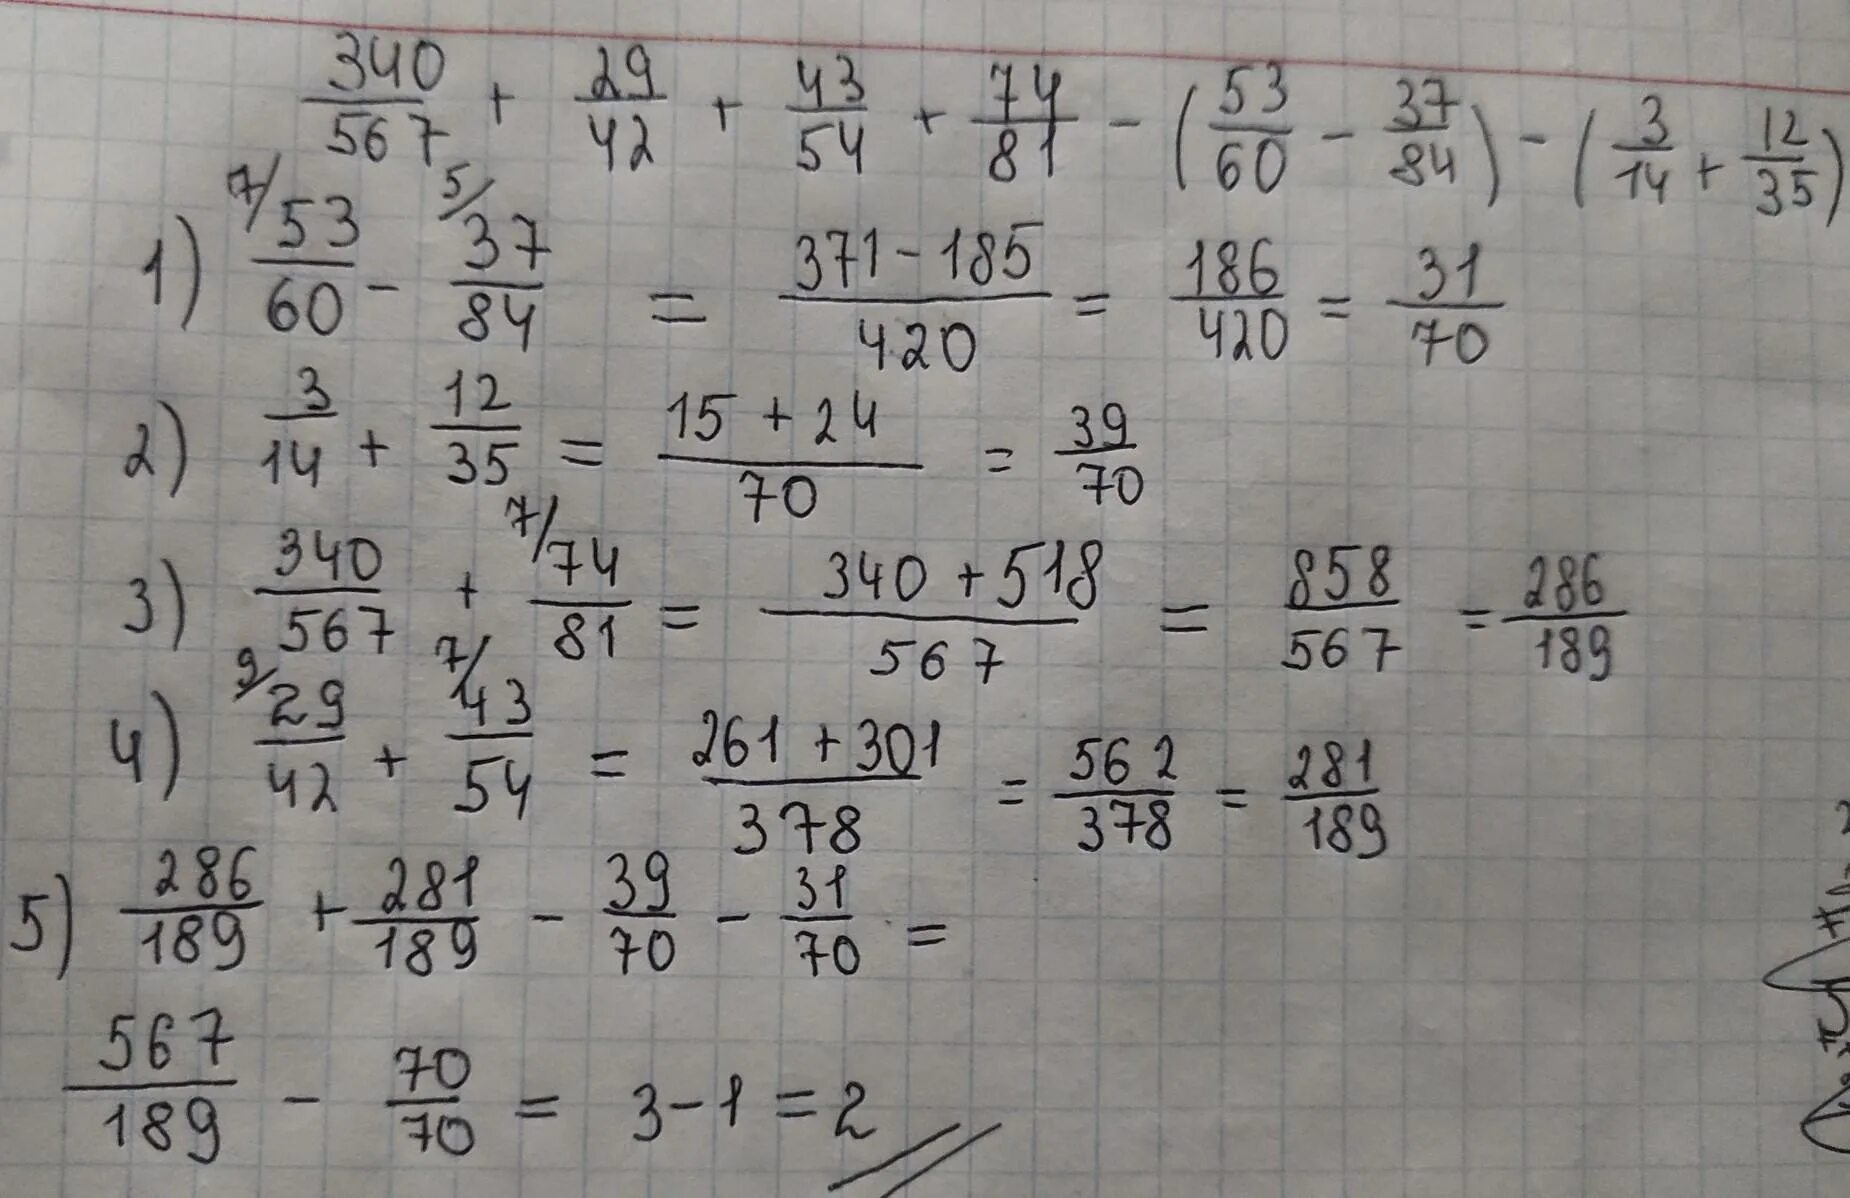 340/567 + 29/42 + 43/54 + 74/81 - (53/60 - 37/84) - (3/14 + 12/35)
1) 7/ 53/60 - 5/ 37/84 = (371-185)/420 = 186/420 = 31/70
2) 3/14 + 12/35 = (15 + 24)/70 = 39/70
3) 340/567 + 7/ 74/81 = (340 + 518)/567 = 858/567 = 286/189
4) 9/ 29/42 + 7/ 43/54 = (261 + 301)/378 = 562/378 = 281/189
5) 286/189 + 281/189 - 39/70 - 31/70 =
567/189 - 70/70 = 3-1 = 2